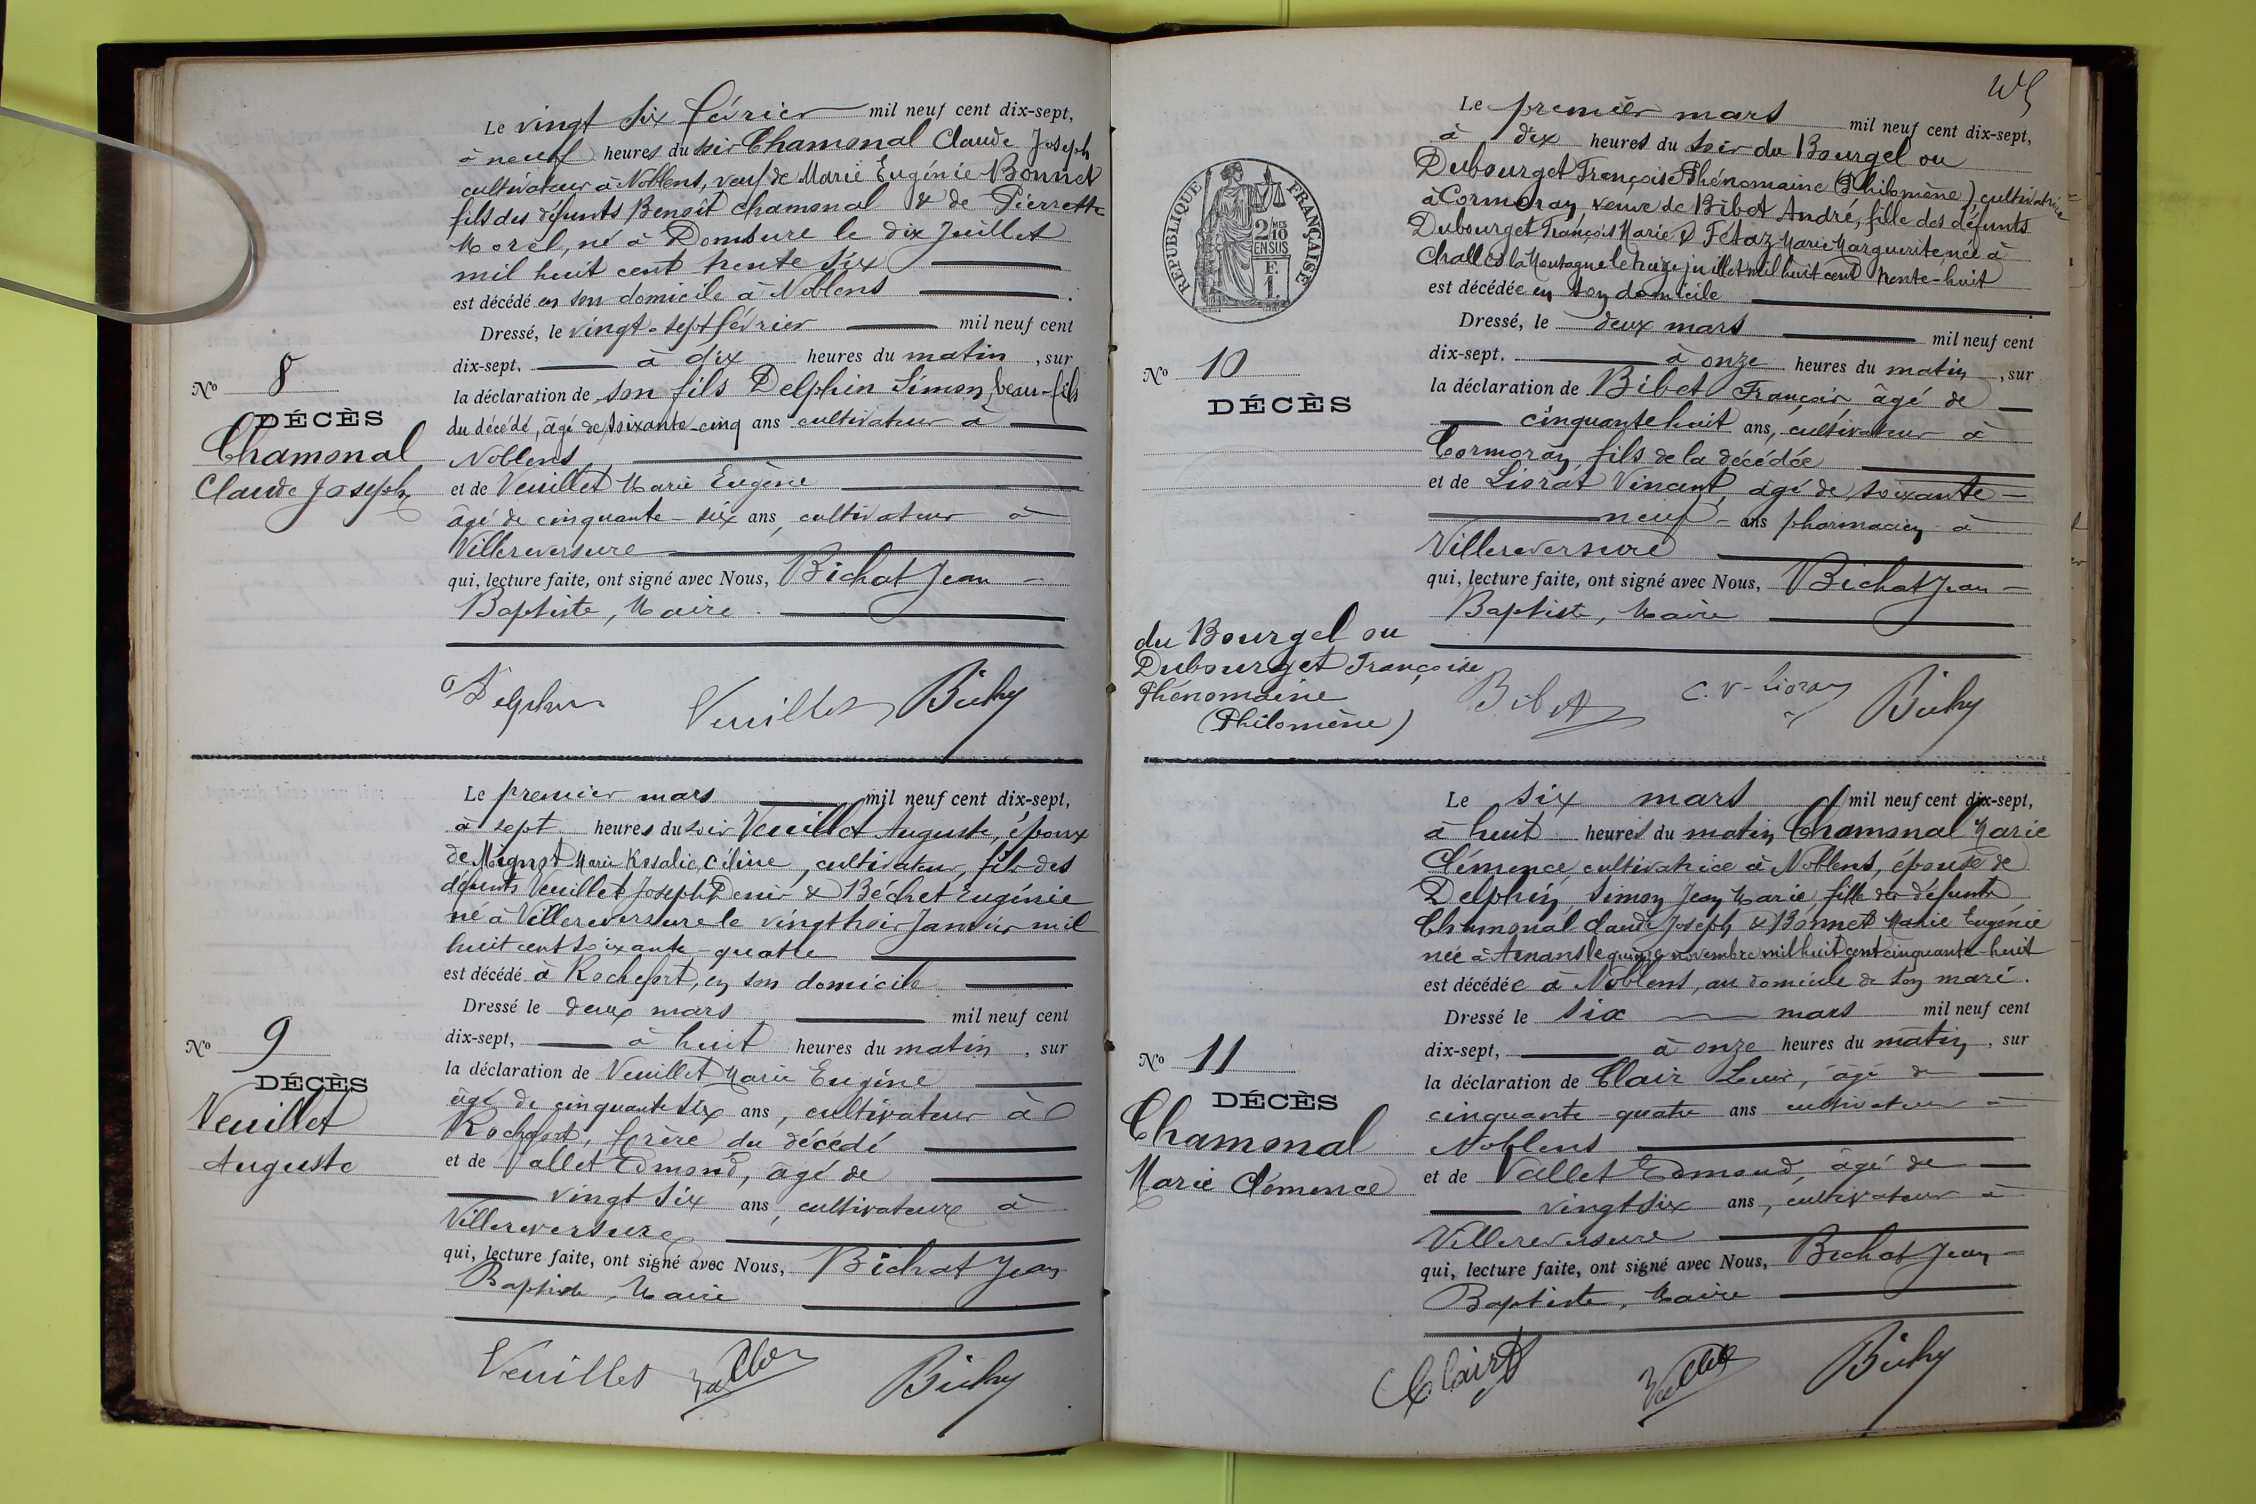 Le vingt six février mil neuf cent dix-sept,
à neuf heures du soir Chamonal Claude Joseph
cultivateur à Noblens, veuf de Marie Eugénie Bonnet
fils des défunts Benoît Chamonal & de Pierrette
Morel, né à Domsure le dix Juillet
mil huit cent trente six
est décédé en son domicile à Noblens
Dressé, le vingt-sept février mil neuf cent
dix-sept, à dix heures du matin, sur
la déclaration de son fils Delphin Simon, beau-fils
du décédé, âgé de soixante-cinq ans cultivateur à
Noblens
et de Veuillet Marie Eugène
âgé de cinquante-six ans, cultivateur à
Villereversure
qui, lecture faite, ont signé avec Nous, Bichat Jean
Baptiste, Maire.
No 8
DÉCÈS
Chamonal
Claude Joseph
Delphin Veuillet
Le premier mars mil neuf cent dix-sept,
à sept heures du soir Veuillet Auguste, époux
de Mignot Marie Rosalie, Céline, cultivateur, fils des
défunts Veuillet Joseph Denis & Béchet Eugénie
né à Villereversure le vingt trois Janvier mil
huit cent soixante-quatre
est décédé à Rochefort, en son domicile
Dressé le deux mars mil neuf cent
dix-sept, à huit heures du matin, sur
la déclaration de Veuillet Marie Eugène
âgé de cinquante six ans, cultivateur à
Rochefort, frère du décédé
et de Vallet Edmond, âgé de
vingt six ans, cultivateur à
Villereversure
qui, lecture faite, ont signé avec Nous, Bichat Jean
Baptiste, Maire
No 9
DÉCÈS
Veuillet
Auguste
Veuillet Vallet
Le premier mars mil neuf cent dix-sept,
à dix heures du soir du Bourgel ou
Dubourget Françoise Phénomaine (Philomène), cultivatrice
à Cormoray veuve de Bibet André, fille des défunts
Dubourget François Marie & Fétaz Marie Marguerite, née à
Challes la Montagne le treize juillet mil huit cent trente-huit
est décédée en son domicile
Dressé, le deux mars mil neuf cent
dix-sept, à onze heures du matin, sur
la déclaration de Bibet François âgé de
cinquante huit ans, cultivateur à
Cormoray, fils de la décédée
et de Liorat Vincent, âgé de soixante-
neuf ans pharmacien à
Villereversure
qui, lecture faite, ont signé avec Nous, Bichat Jean-
Baptiste, Maire
RÉPUBLIQUE FRANÇAISE
2/10 MES
EN SUS
F.
1.
No 10
DÉCÈS
du Bourgel ou
Dubourget Françoise
Phénomaine
(Philomène)
Bibet C. V. Liorat
Le six mars mil neuf cent dix-sept,
à huit heures du matin, Chamonal Marie
Clémence, cultivatrice à Noblens, épouse de
Delphin Simon Jean Marie, fille des défunts
Chamonal Claude Joseph & Bonnet Marie Eugénie
née à Arnans le quinze novembre mil huit cent cinquante-huit
est décédée à Noblens, au domicile de son mari.
Dressé le six mars mil neuf cent
dix-sept, à onze heures du matin, sur
la déclaration de Clair Louis, âgé de
cinquante-quatre ans cultivateur à
Noblens
et de Vallet Edmond, âgé de
vingt six ans, cultivateur à
Villereversure
qui, lecture faite, ont signé avec Nous, Bichat Jean-
Baptiste, Maire
No 11
DÉCÈS
Chamonal
Marie Clémence
Clair Vallet